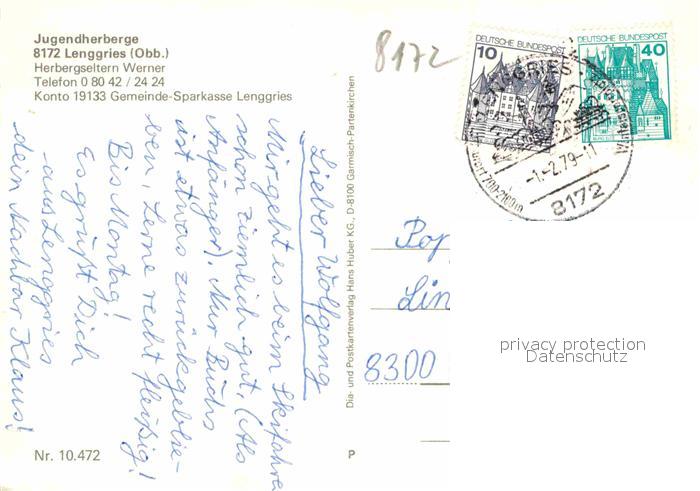 Jugendherberge
8172 Lenggries (Obb.)
Herbergseltern Werner
Telefon 0 80 42 / 24 24
Konto 19133 Gemeinde-Sparkasse Lenggries
8172
DEUTSCHE BUNDESPOST
10
DEUTSCHE BUNDESPOST
40
LENGGRIES
-1.-2.79-11
8172
Lieber Wolfgang
Mir geht es beim Skifahren
schon ziemlich gut. (Als
Anfänger). Nur Buchs
ist etwas zurückgeblie-
ben, Lerne recht fleißig!
Bis Montag!
Es grüßt Dich
aus Lenggries
dein Nachbar Klaus!
Dia- und Postkartenverlag Hans Huber KG., D-8100 Garmisch-Partenkirchen
Lin
8300
privacy protection
Datenschutz
Nr. 10.472
P